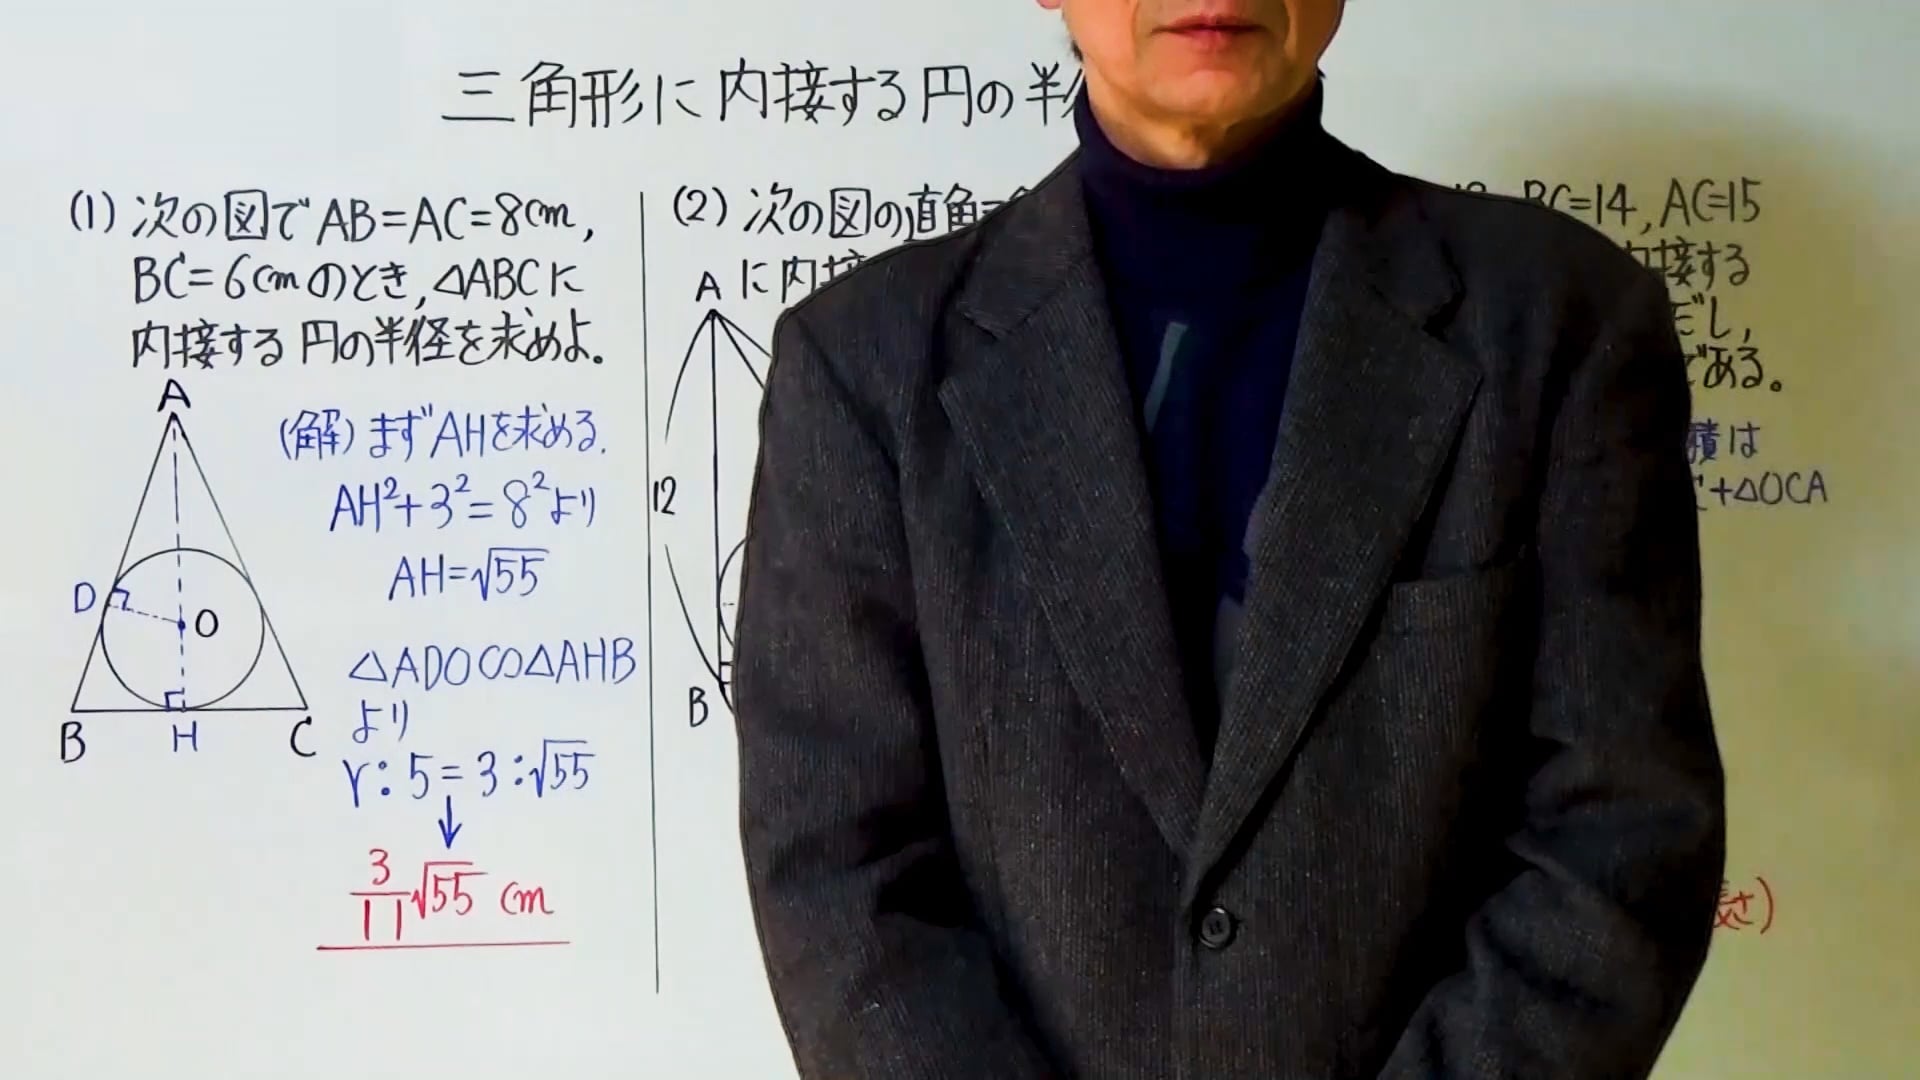 三角形に内接する円の半
(1) 次の図でAB=AC=8cm,
BC=6cmのとき,△ABCに
内接する円の半径を求めよ。
A
D
O
B
H
C
(解)まずAHを求める.
AH²+3²=8²より
AH=√55
△ADO∽△AHB
より
r:5=3:√55
↓
3/11√55 cm
(2) 次の図の直角
に内接
A
12
B
BC=14,AC=15
内接する
だし,
である。
積は
+△OCA
長さ)